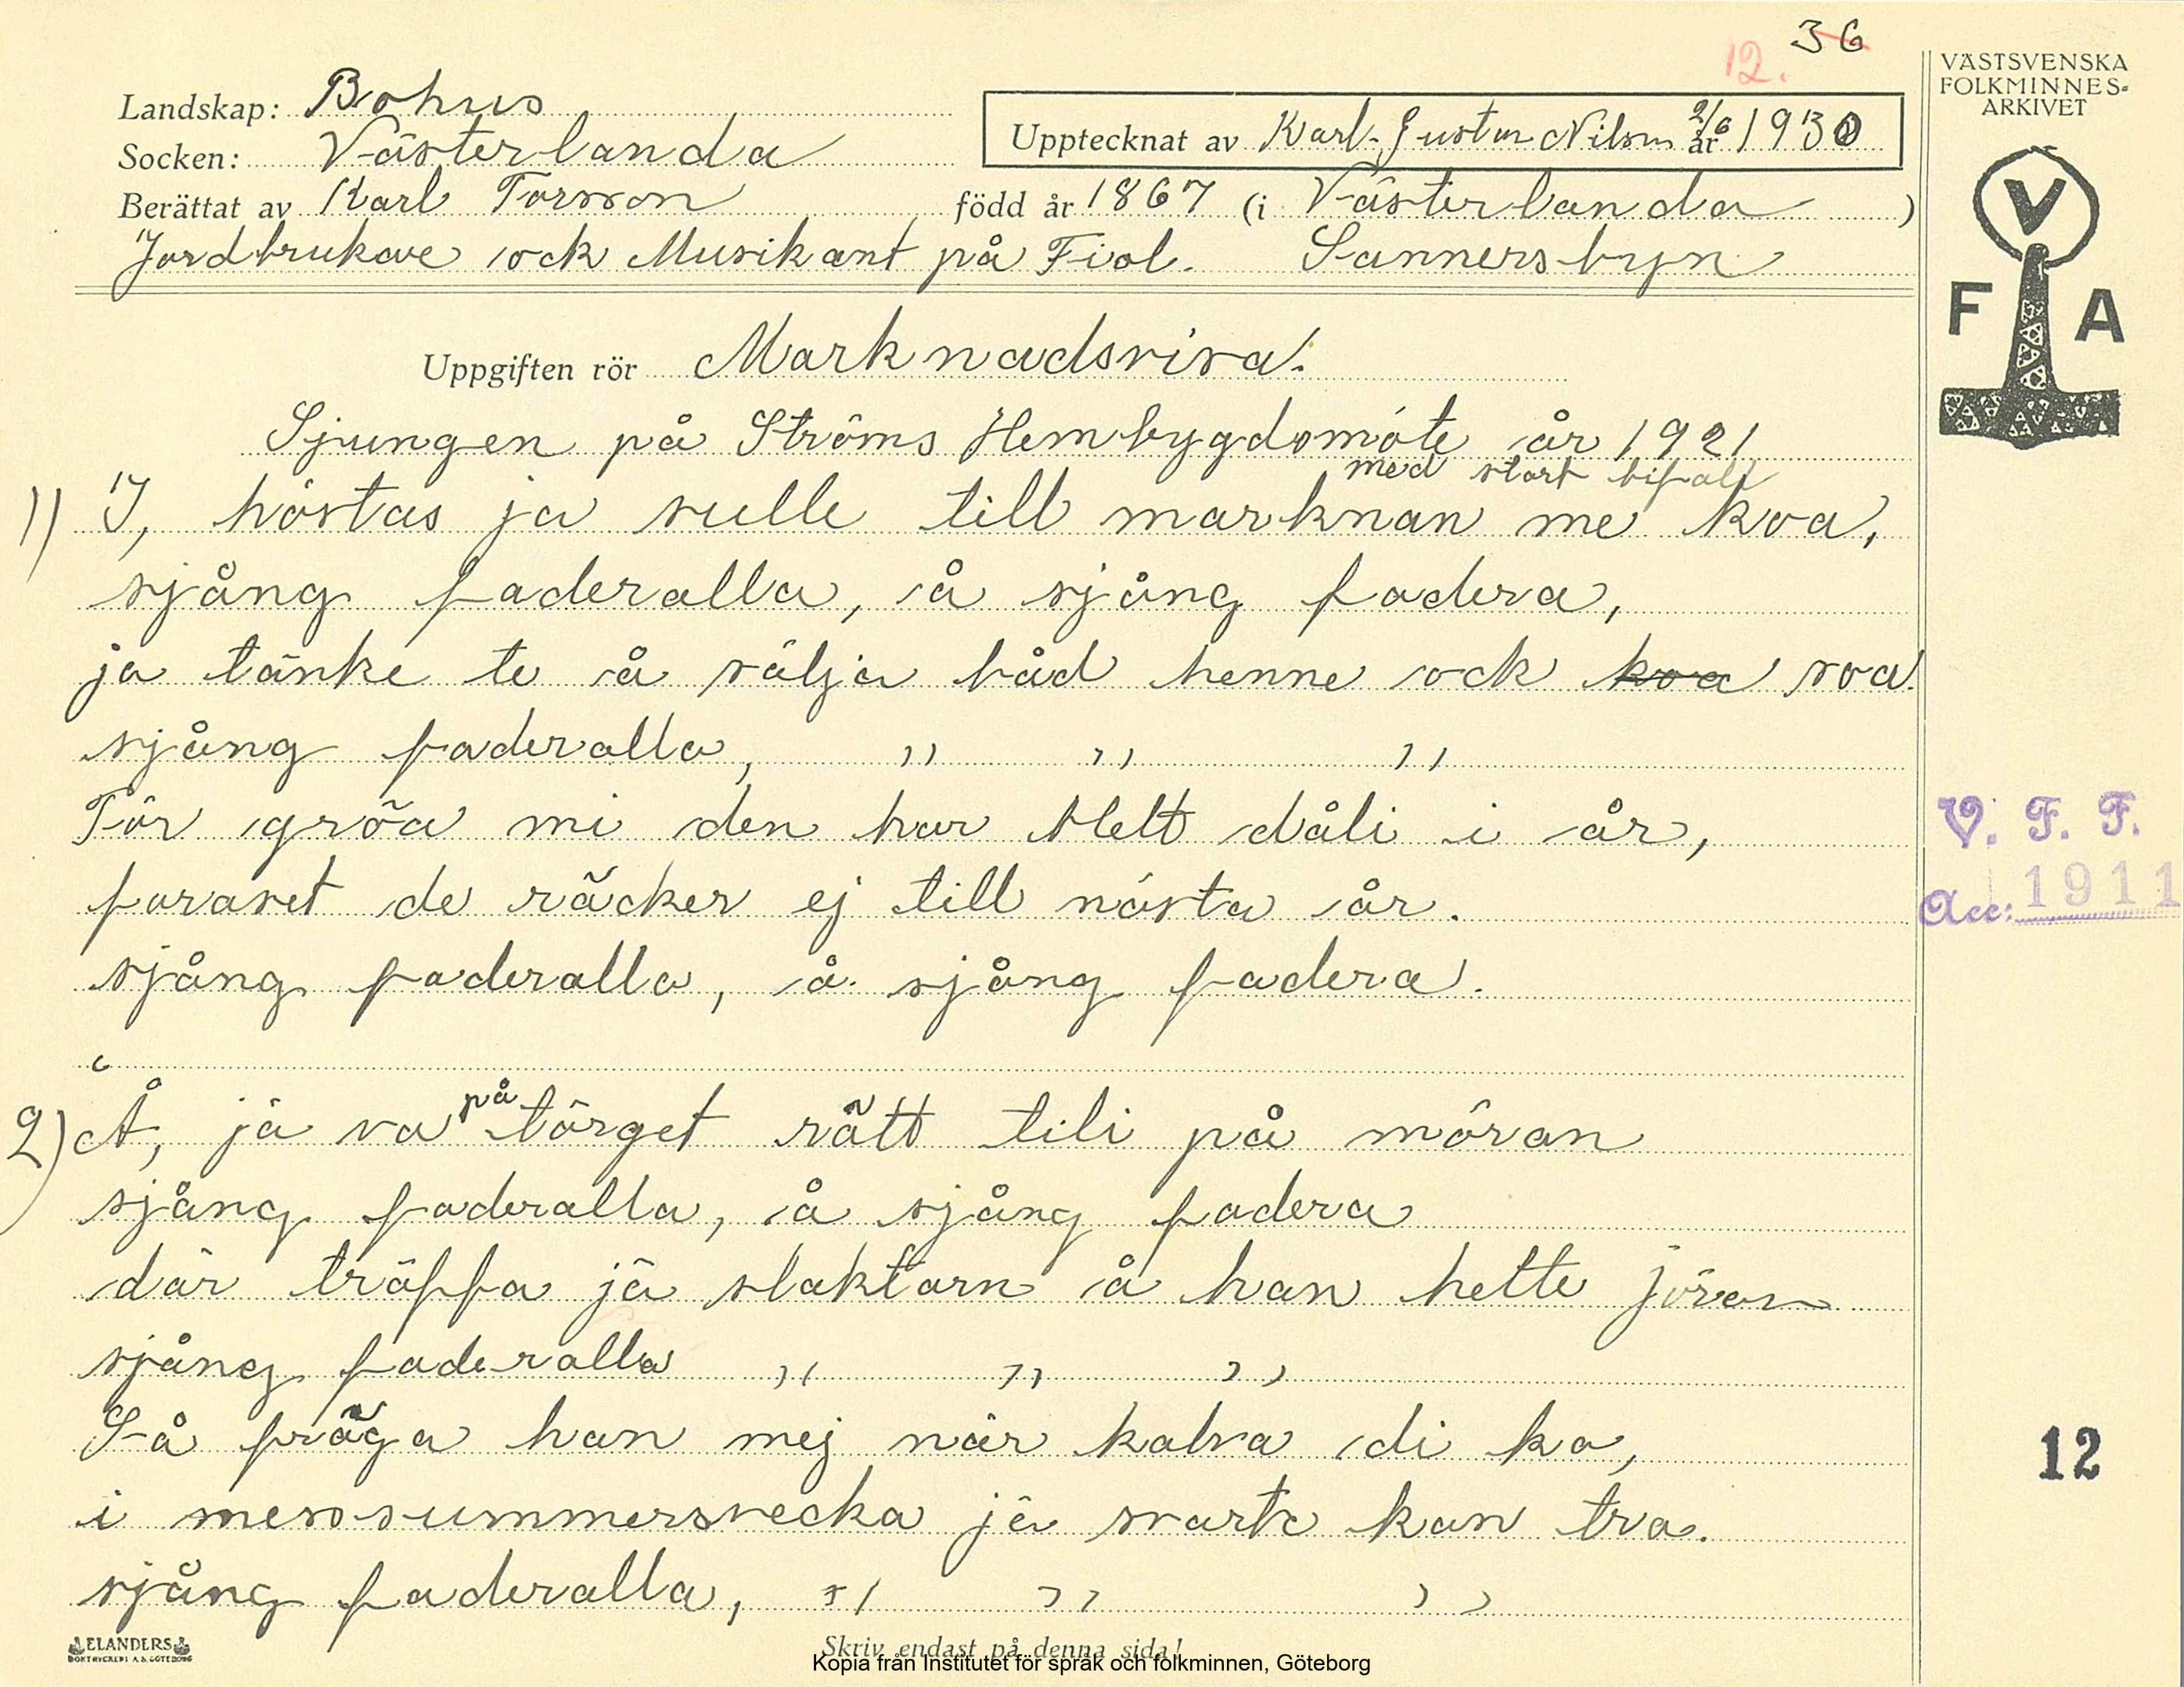 12. 36
VÄSTSVENSKA
FOLKMINNES-
ARKIVET
Landskap: Bohus
Upptecknat av Karl-Gustav Nilson 2/6 år 1930
Socken: Västerlanda
Berättat av Karl Torsson född år 1867 (i Västerlanda)
Jordbrukare ock Musikant på Fiol. Sannersbyn
V
F A
Uppgiften rör Marknadsvisa.
Sjungen på Ströms Hembygdsmöte år 1921
med stort bifall
1) I, höstas ja sulle till marknan me koa,
sjång faderalla, å sjång fadera,
ja tänke te å sälja båd henne ock koa soa.
sjång faderalla, " " "
För gröa mi den har blett dåli i år,
foravet de räcker ej till nästa år.
sjång faderalla, å sjång fadera.
2) Å, jä va på törget rätt tili på möran
sjång faderalla, å sjång fadera
där träffa jä slaktarn å han hette Jöran
sjång faderalla " " "
Så fräga han mej när kalva di ko,
i messsummersvecka jä svarte kan tro.
sjång faderalla, " " "
V. F. F.
Acc: 1911
12
ELANDERS
BOKTRYCKERI A.B. GÖTEBORG
Skriv endast på denna sida!
Kopia från Institutet för språk och folkminnen, Göteborg